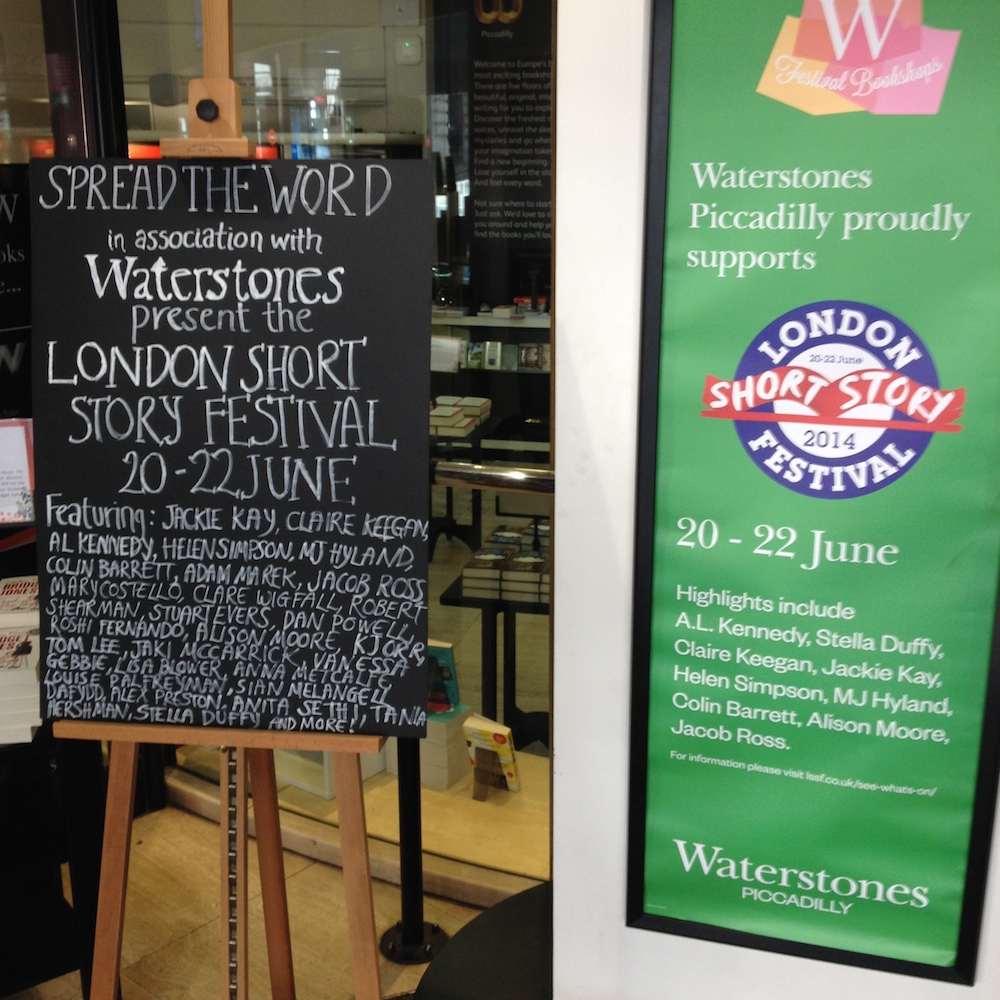 SPREAD THE WORD
in association with
Waterstones
present the
LONDON SHORT
STORY FESTIVAL
20-22 JUNE
Featuring: JACKIE KAY, CLAIRE KEEGAN,
AL KENNEDY, HELEN SIMPSON, MJ HYLAND,
COLIN BARRETT, ADAM MAREK, JACOB ROSS
MARY COSTELLO, CLARE WIGFALL, ROBERT
SHEARMAN, STUART EVERS, DAN POWELL,
ROSHI FERNANDO, ALISON MOORE, KJ ORR,
TOM LEE, JAKI MCCARRICK, VANESSA
GEBBIE, LISA BLOWER, ANNA METCALFE,
LOUISE PALFREYMAN, SIAN MELANGELL
DAFYDD, ALEX PRESTON, ANITA SETHI, TANIA
HERSHMAN, STELLA DUFFY AND MORE!!
W
Piccadilly
Welcome to Europe's
most exciting
There are five floors of
beautiful, original,
writing for you to
Discover the freshest
voices, unravel the
mysteries and go
your imagination
Find a new beginning.
Lose yourself in the
And feel every word.
Not sure where to start
Just ask. We'd love to
you around and help
find the books you'll
W
Festival Bookshops
Waterstones
Piccadilly proudly
supports
LONDON
20-22 June
SHORT STORY
2014
FESTIVAL
20 - 22 June
Highlights include
A.L. Kennedy, Stella Duffy,
Claire Keegan, Jackie Kay,
Helen Simpson, MJ Hyland,
Colin Barrett, Alison Moore,
Jacob Ross.
For information please visit lssf.co.uk/see-whats-on/
Waterstones
PICCADILLY